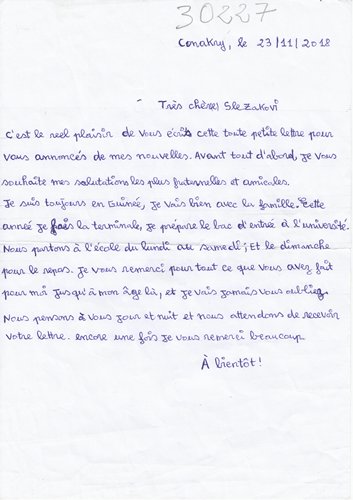 30227
Conakry, le 23/11/2018
Très chère) Slezakovi
C'est le reel plaisir de vous écris cette toute petite lettre pour
vous annoncés de mes nouvelles. Avant tout d'abord, je vous
souhaite mes salutations les plus fraternelles et amicales.
Je suis toujours en Guinée, je vais bien avec la famille. Cette
année je fais la terminale, je prépare le bac d'entré à l'université.
Nous partons à l'école du lundi au samedi; Et le dimanche
pour le repos. Je vous remerci pour tout ce que vous avez fait
pour moi jusqu'à mon âge là, et je vais jamais vous oubliez.
Nous pensons à vous jour et nuit et nous attendons de recevoir
votre lettre. encore une fois je vous remerci beaucoup
À bientôt!